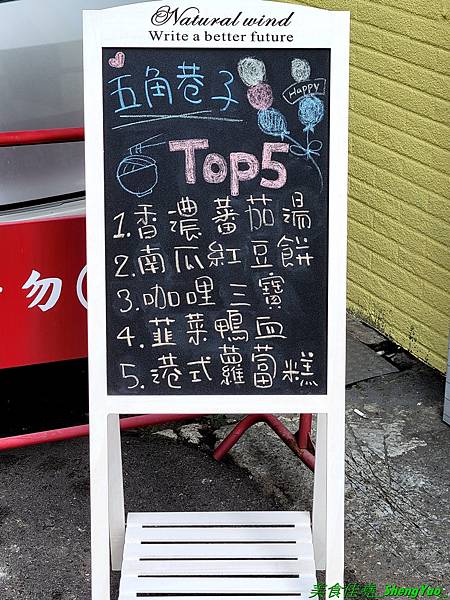 Natural wind
Write a better future
五角巷子
Happy
Top5
1.香濃蕃茄湯
2.南瓜紅豆餅
3.咖哩三寶
4.韮菜鴨血
5.港式蘿蔔糕
勿
美食佳饒_ShengYao